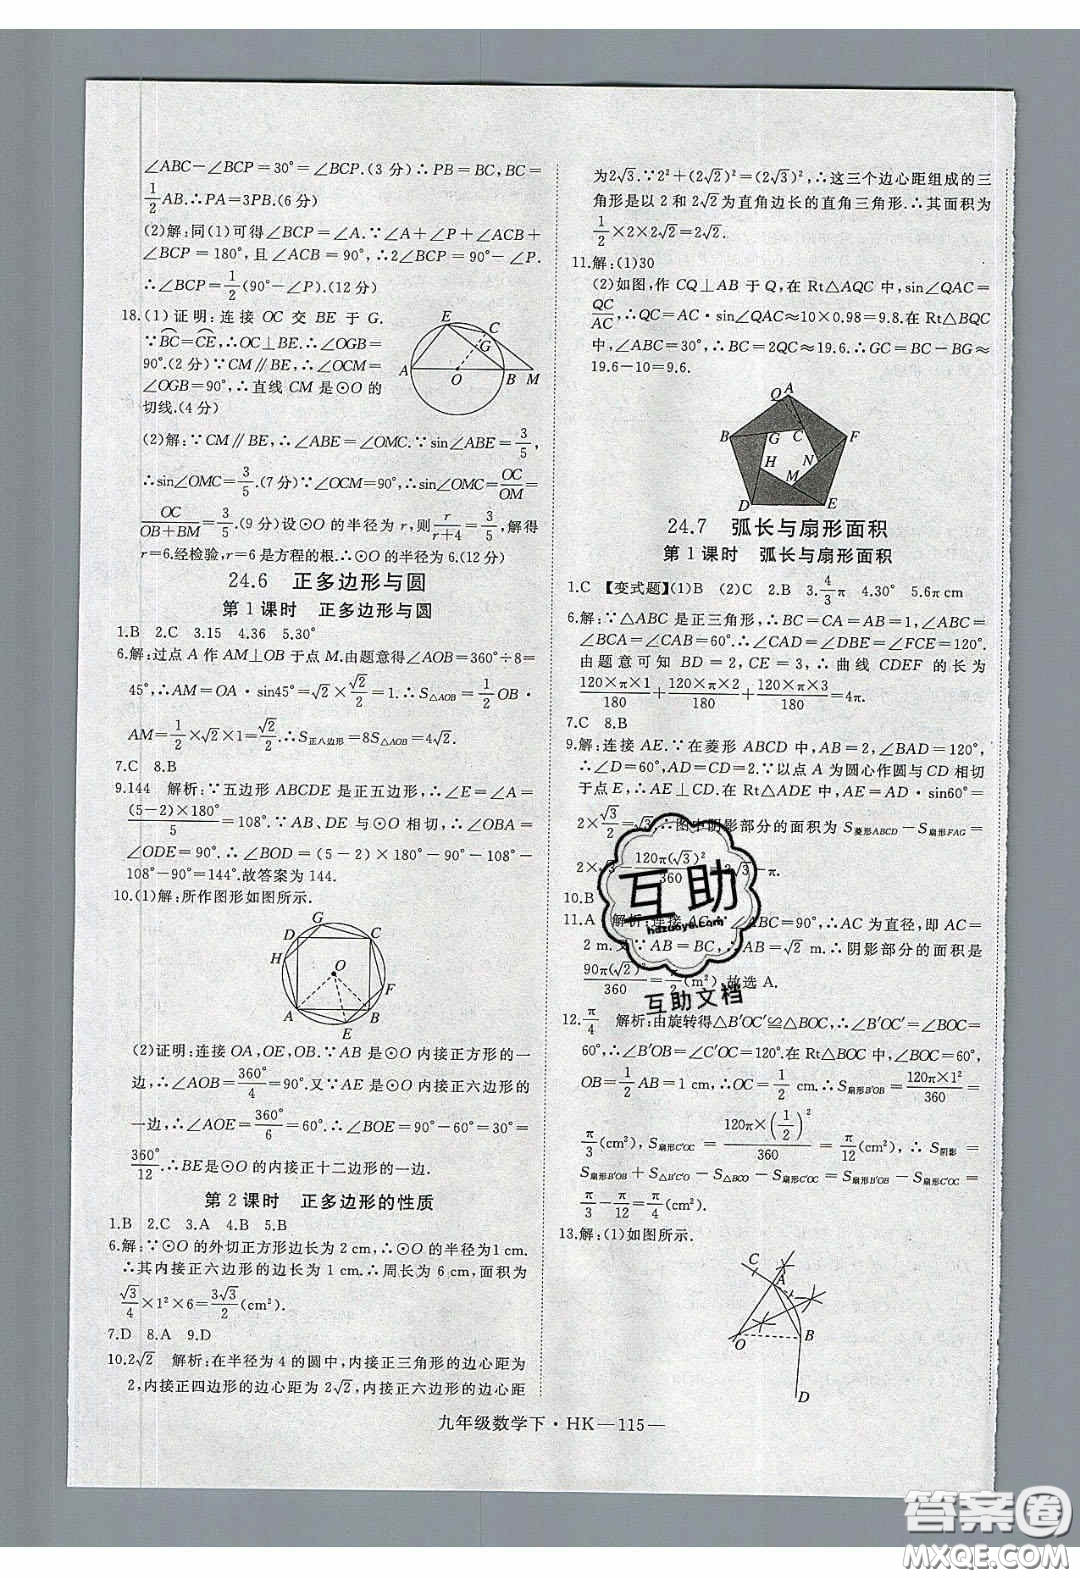 ∠ABC－∠BCP＝30°＝∠BCP.(3 分)∴PB＝BC,BC＝
1/2 AB.∴PA＝3PB.(6分)
(2)解:同(1)可得∠BCP＝∠A.∵∠A＋∠P＋∠ACB＋
∠BCP＝180°,且∠ACB＝90°,∴2∠BCP＝90°－∠P.
∴∠BCP＝1/2(90°－∠P).(12分)
18.(1)证明:连接 OC 交 BE 于 G.
∵BC＝CE,∴OC⊥BE.∴∠OGB＝
90°.(2分)∵CM∥BE,∴∠OCM＝
∠OGB＝90°,∴直线 CM 是⊙O 的
切线.(4分)
E C G A O B M
(2)解:∵CM∥BE,∴∠ABE＝∠OMC.∵sin∠ABE＝3/5,
∴sin∠OMC＝3/5.(7分)∵∠OCM＝90°,∴sin∠OMC＝OC/OM＝
OC/(OB＋BM)＝3/5.(9分)设⊙O的半径为r,则r/(r＋4)＝3/5,解得
r＝6.经检验,r＝6是方程的根.∴⊙O的半径为6.(12分)
24.6 正多边形与圆
第1课时 正多边形与圆
1.B 2.C 3.15 4.36 5.30°
6.解:过点A作AM⊥OB于点M.由题意得∠AOB＝360°÷8＝
45°,∴AM＝OA·sin45°＝√2×√2/2＝1.∴S△AOB＝1/2 OB·
AM＝1/2×√2×1＝√2/2.∴S正八边形＝8S△AOB＝4√2.
7.C 8.B
9.144 解析:∵五边形ABCDE是正五边形,∴∠E＝∠A＝
(5－2)×180°/5＝108°.∵AB、DE与⊙O相切,∴∠OBA＝
∠ODE＝90°.∴∠BOD＝(5－2)×180°－90°－108°－
108°－90°＝144°.故答案为144.
10.(1)解:所作图形如图所示.
G D C H O F A B E
(2)证明:连接OA,OE,OB.∵AB是⊙O内接正方形的一
边,∴∠AOB＝360°/4＝90°.又∵AE是⊙O内接正六边形的
一边,∴∠AOE＝360°/6＝60°.∴∠BOE＝90°－60°＝30°＝
360°/12.∴BE是⊙O的内接正十二边形的一边.
第2课时 正多边形的性质
1.B 2.C 3.A 4.B 5.B
6.解:∵⊙O的外切正方形边长为2 cm,∴⊙O的半径为1 cm.
∴其内接正六边形的边长为1 cm.∴周长为6 cm,面积为
√3/4×1²×6＝3√3/2(cm²).
7.D 8.A 9.D
10.2√2 解析:在半径为4的圆中,内接正三角形的边心距为
2,内接正四边形的边心距为2√2,内接正六边形的边心距
为2√3.∵2²＋(2√2)²＝(2√3)²,∴这三个边心距组成的三
角形是以2和2√2为直角边长的直角三角形.∴其面积为
1/2×2×2√2＝2√2.
11.解:(1)30
(2)如图,作CQ⊥AB于Q,在Rt△AQC中,sin∠QAC＝
QC/AC,∴QC＝AC·sin∠QAC≈10×0.98＝9.8.在Rt△BQC
中,∠ABC＝30°,∴BC＝2QC≈19.6.∴GC＝BC－BG≈
19.6－10＝9.6.
Q A B G C F H N M D E
24.7 弧长与扇形面积
第1课时 弧长与扇形面积
1.C 【变式题】(1)B (2)C 2.B 3.4/3π 4.30° 5.6π cm
6.解:∵△ABC是正三角形,∴BC＝CA＝AB＝1,∠ABC＝
∠BCA＝∠CAB＝60°.∴∠CAD＝∠DBE＝∠FCE＝120°.
由题意可知BD＝2,CE＝3,∴曲线CDEF的长为
120×π×1/180＋120×π×2/180＋120×π×3/180＝4π.
7.C 8.B
9.解:连接AE.∵在菱形ABCD中,AB＝2,∠BAD＝120°,
∴∠D＝60°,AD＝CD＝2.∵以点A为圆心作圆与CD相切
于点E,∴AE⊥CD.在Rt△ADE中,AE＝AD·sin60°＝
2×√3/2＝√3.∴图中阴影部分的面积为S菱形ABCD－S扇形FAG＝
2×√3－120π(√3)²/360＝2√3－π.
10.B
11.A 解析:连接AC.∵∠ABC＝90°,∴AC为直径,即AC＝
2 m.又∵AB＝BC,∴AB＝√2 m.∴阴影部分的面积是
90π(√2)²/360＝π/2(m²).故选A.
12.π/4 解析:由旋转得△B′OC′≌△BOC,∴∠B′OC′＝∠BOC＝
60°,∴∠B′OB＝∠C′OC＝120°.在Rt△BOC中,∠BOC＝60°,
OB＝1/2 AB＝1 cm,∴OC＝1/2 cm.∴S扇形B′OB＝120π×1²/360＝
π/3(cm²),S扇形C′OC＝120π×(1/2)²/360＝π/12(cm²),∴S阴影＝
S扇形B′OB＋S△B′C′O－S△BCO－S扇形C′OC＝S扇形B′OB－S扇形C′OC＝
π/3－π/12＝π/4(cm²).
13.解:(1)如图所示.
C A O B D
九年级数学下·HK—115—
互助
hzzuoye.com
互助文档
答案圈
MXQE.COM